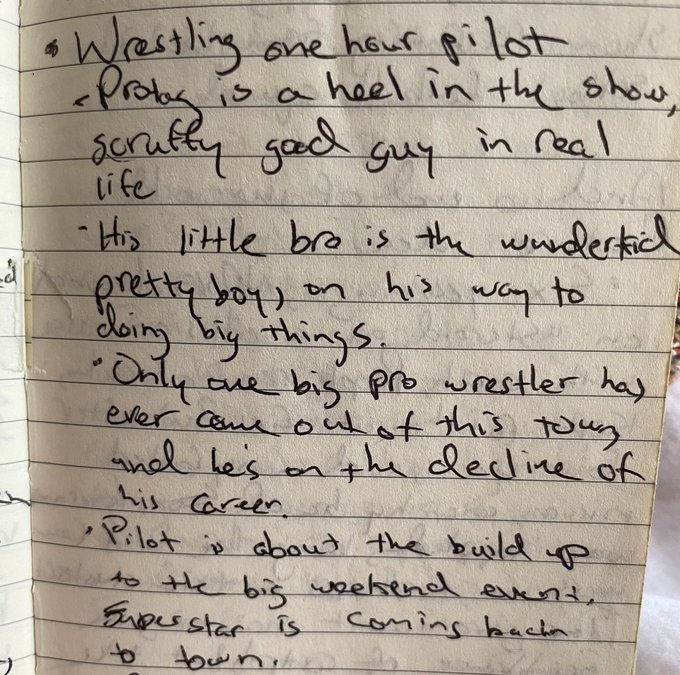 Wrestling one hour pilot
- Protag is a heel in the show,
scruffy good guy in real
life
- His little bro is the wunderkid
pretty boy, on his way to
doing big things.
• Only one big pro wrestler has
ever come out of this town,
and he's on the decline of
his career.
• Pilot is about the build up
to the big weekend event.
Superstar is coming back
to town.